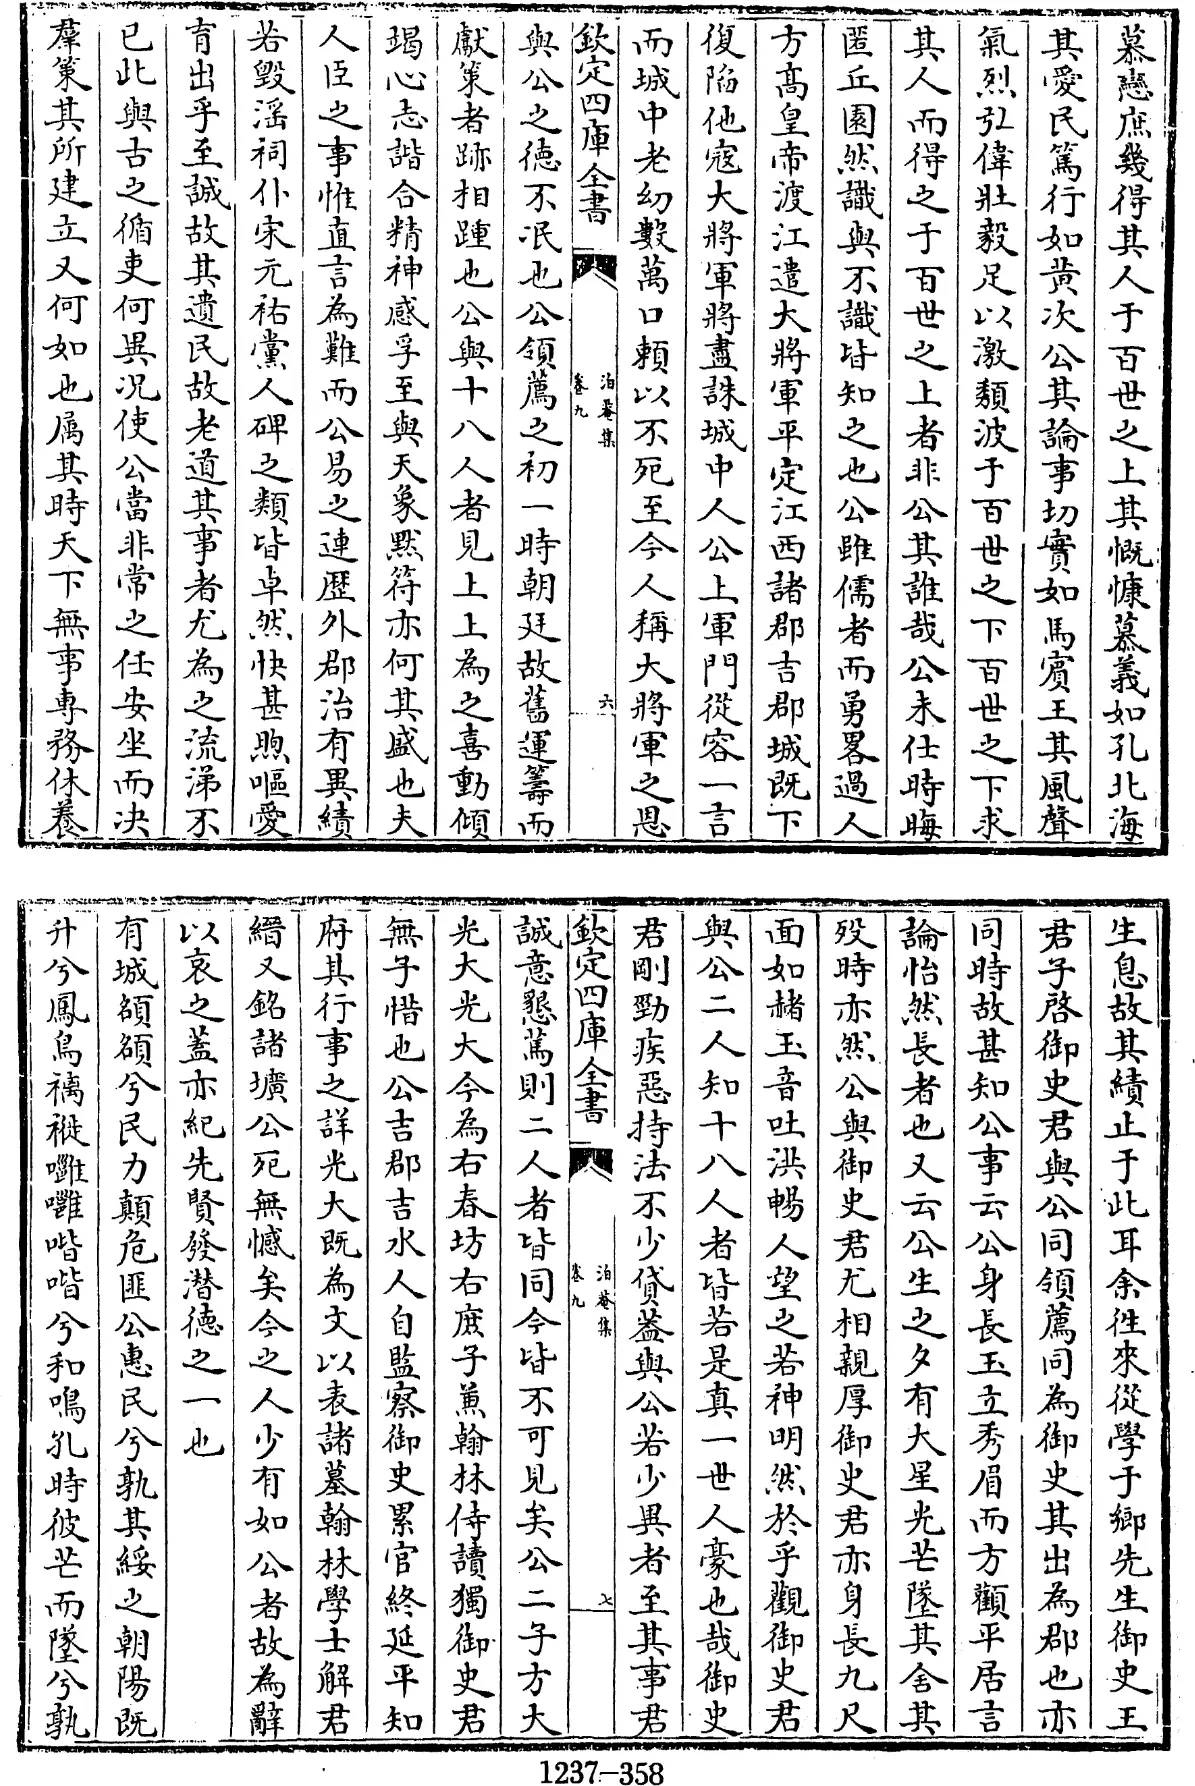 慕戀庶幾得其人于百世之上其慨慷慕義如孔北海
其愛民篤行如黄次公其論事切實如馬賔王其風聲
氣烈弘偉壯毅足以激頽波于百世之下百世之下求
其人而得之于百世之上者非公其誰哉公未仕時晦
匿丘園然識與不識皆知之也公雖儒者而勇畧過人
方髙皇帝渡江遣大將軍平定江西諸郡吉郡城既下
復陷他寇大將軍將盡誅城中人公上軍門從容一言
而城中老幼數萬口賴以不死至今人稱大將軍之恩
欽定四庫全書
泊菴集
卷九
六
與公之德不泯也公領薦之初一時朝廷故舊運籌而
獻策者跡相踵也公與十八人者見上上為之喜動傾
竭心志諧合精神感孚至與天象黙符亦何其盛也夫
人臣之事惟直言為難而公易之連歴外郡治有異績
若毀滛祠仆宋元祐黨人碑之類皆卓然快甚煦嘔愛
育出乎至誠故其遺民故老道其事者尤為之流涕不
已此與古之循吏何異况使公當非常之任安坐而决
羣策其所建立又何如也属其時天下無事專務休養
生息故其績止于此耳余徃來從學于鄉先生御史王
君子啓御史君與公同領薦同為御史其出為郡也亦
同時故甚知公事云公身長玉立秀眉而方顴平居言
論怡然長者也又云公生之夕有大星光芒墜其舍其
殁時亦然公與御史君尤相親厚御史君亦身長九尺
面如赭玉音吐洪暢人望之若神明然於乎觀御史君
與公二人知十八人者皆若是真一世人豪也哉御史
君剛勁疾惡持法不少貸葢與公若少異者至其事君
欽定四庫全書
泊菴集
卷九
七
誠意懇篤則二人者皆同今皆不可見矣公二子方大
光大光大今為右春坊右庶子兼翰林侍讀獨御史君
無子惜也公吉郡吉水人自監察御史累官終延平知
府其行事之詳光大既為文以表諸墓翰林學士解君
縉又銘諸壙公死無憾矣今之人少有如公者故為辭
以哀之蓋亦紀先賢發潜德之一也
有城頟頟兮民力顛危匪公惠民兮孰其綏之朝陽既
升兮鳳鳥褵褷嚾嚾喈喈兮和鳴孔時彼芒而墜兮孰
1237—358